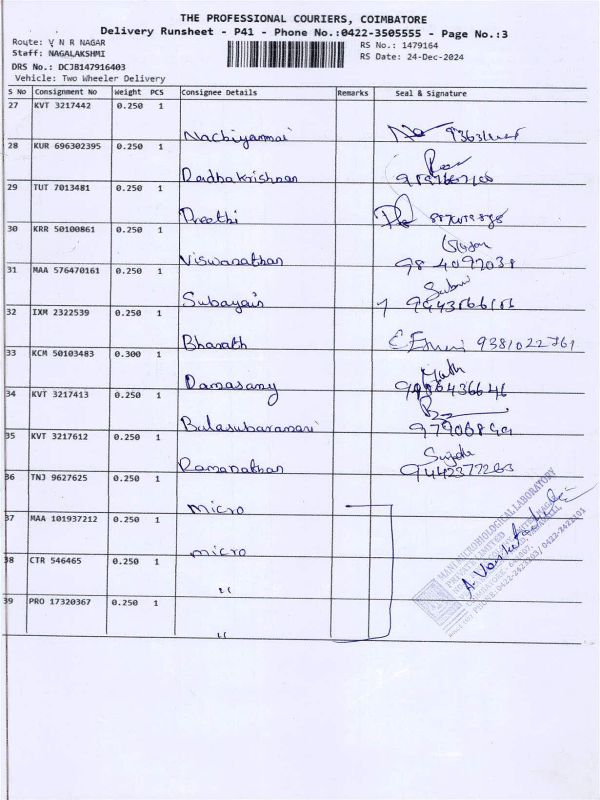 THE PROFESSIONAL COURIERS, COIMBATORE
Delivery Runsheet - P41 - Phone No.:0422-3505555 - Page No.:3
Route: V N R NAGAR
RS No.: 1479164
Staff: NAGALAKSHMI
RS Date: 24-Dec-2024
DRS No.: DCJB147916403
Vehicle: Two Wheeler Delivery
S No Consignment No Weight PCS Consignee Details Remarks Seal & Signature
27 KVT 3217442 0.250 1
Nachiyammai
28 KUR 696302395 0.250 1
Radhakrishnan
29 TUT 7013481 0.250 1
Preethi
30 KRR 50100861 0.250 1
Viswanathan 984092038
31 MAA 576470161 0.250 1
Subayain
32 IXM 2322539 0.250 1
Bharath 9381022761
33 KCM 50103483 0.300 1
Ramasamy
34 KVT 3217413 0.250 1
Balasubaramani
35 KVT 3217612 0.250 1
Ramanathan 9442377263
36 TNJ 9627625 0.250 1
micro
37 MAA 101937212 0.250 1
micro
38 CTR 546465 0.250 1
"
39 PRO 17320367 0.250 1
"
MANI MICROBIOLOGICAL LABORATORY
PRIVATE LIMITED